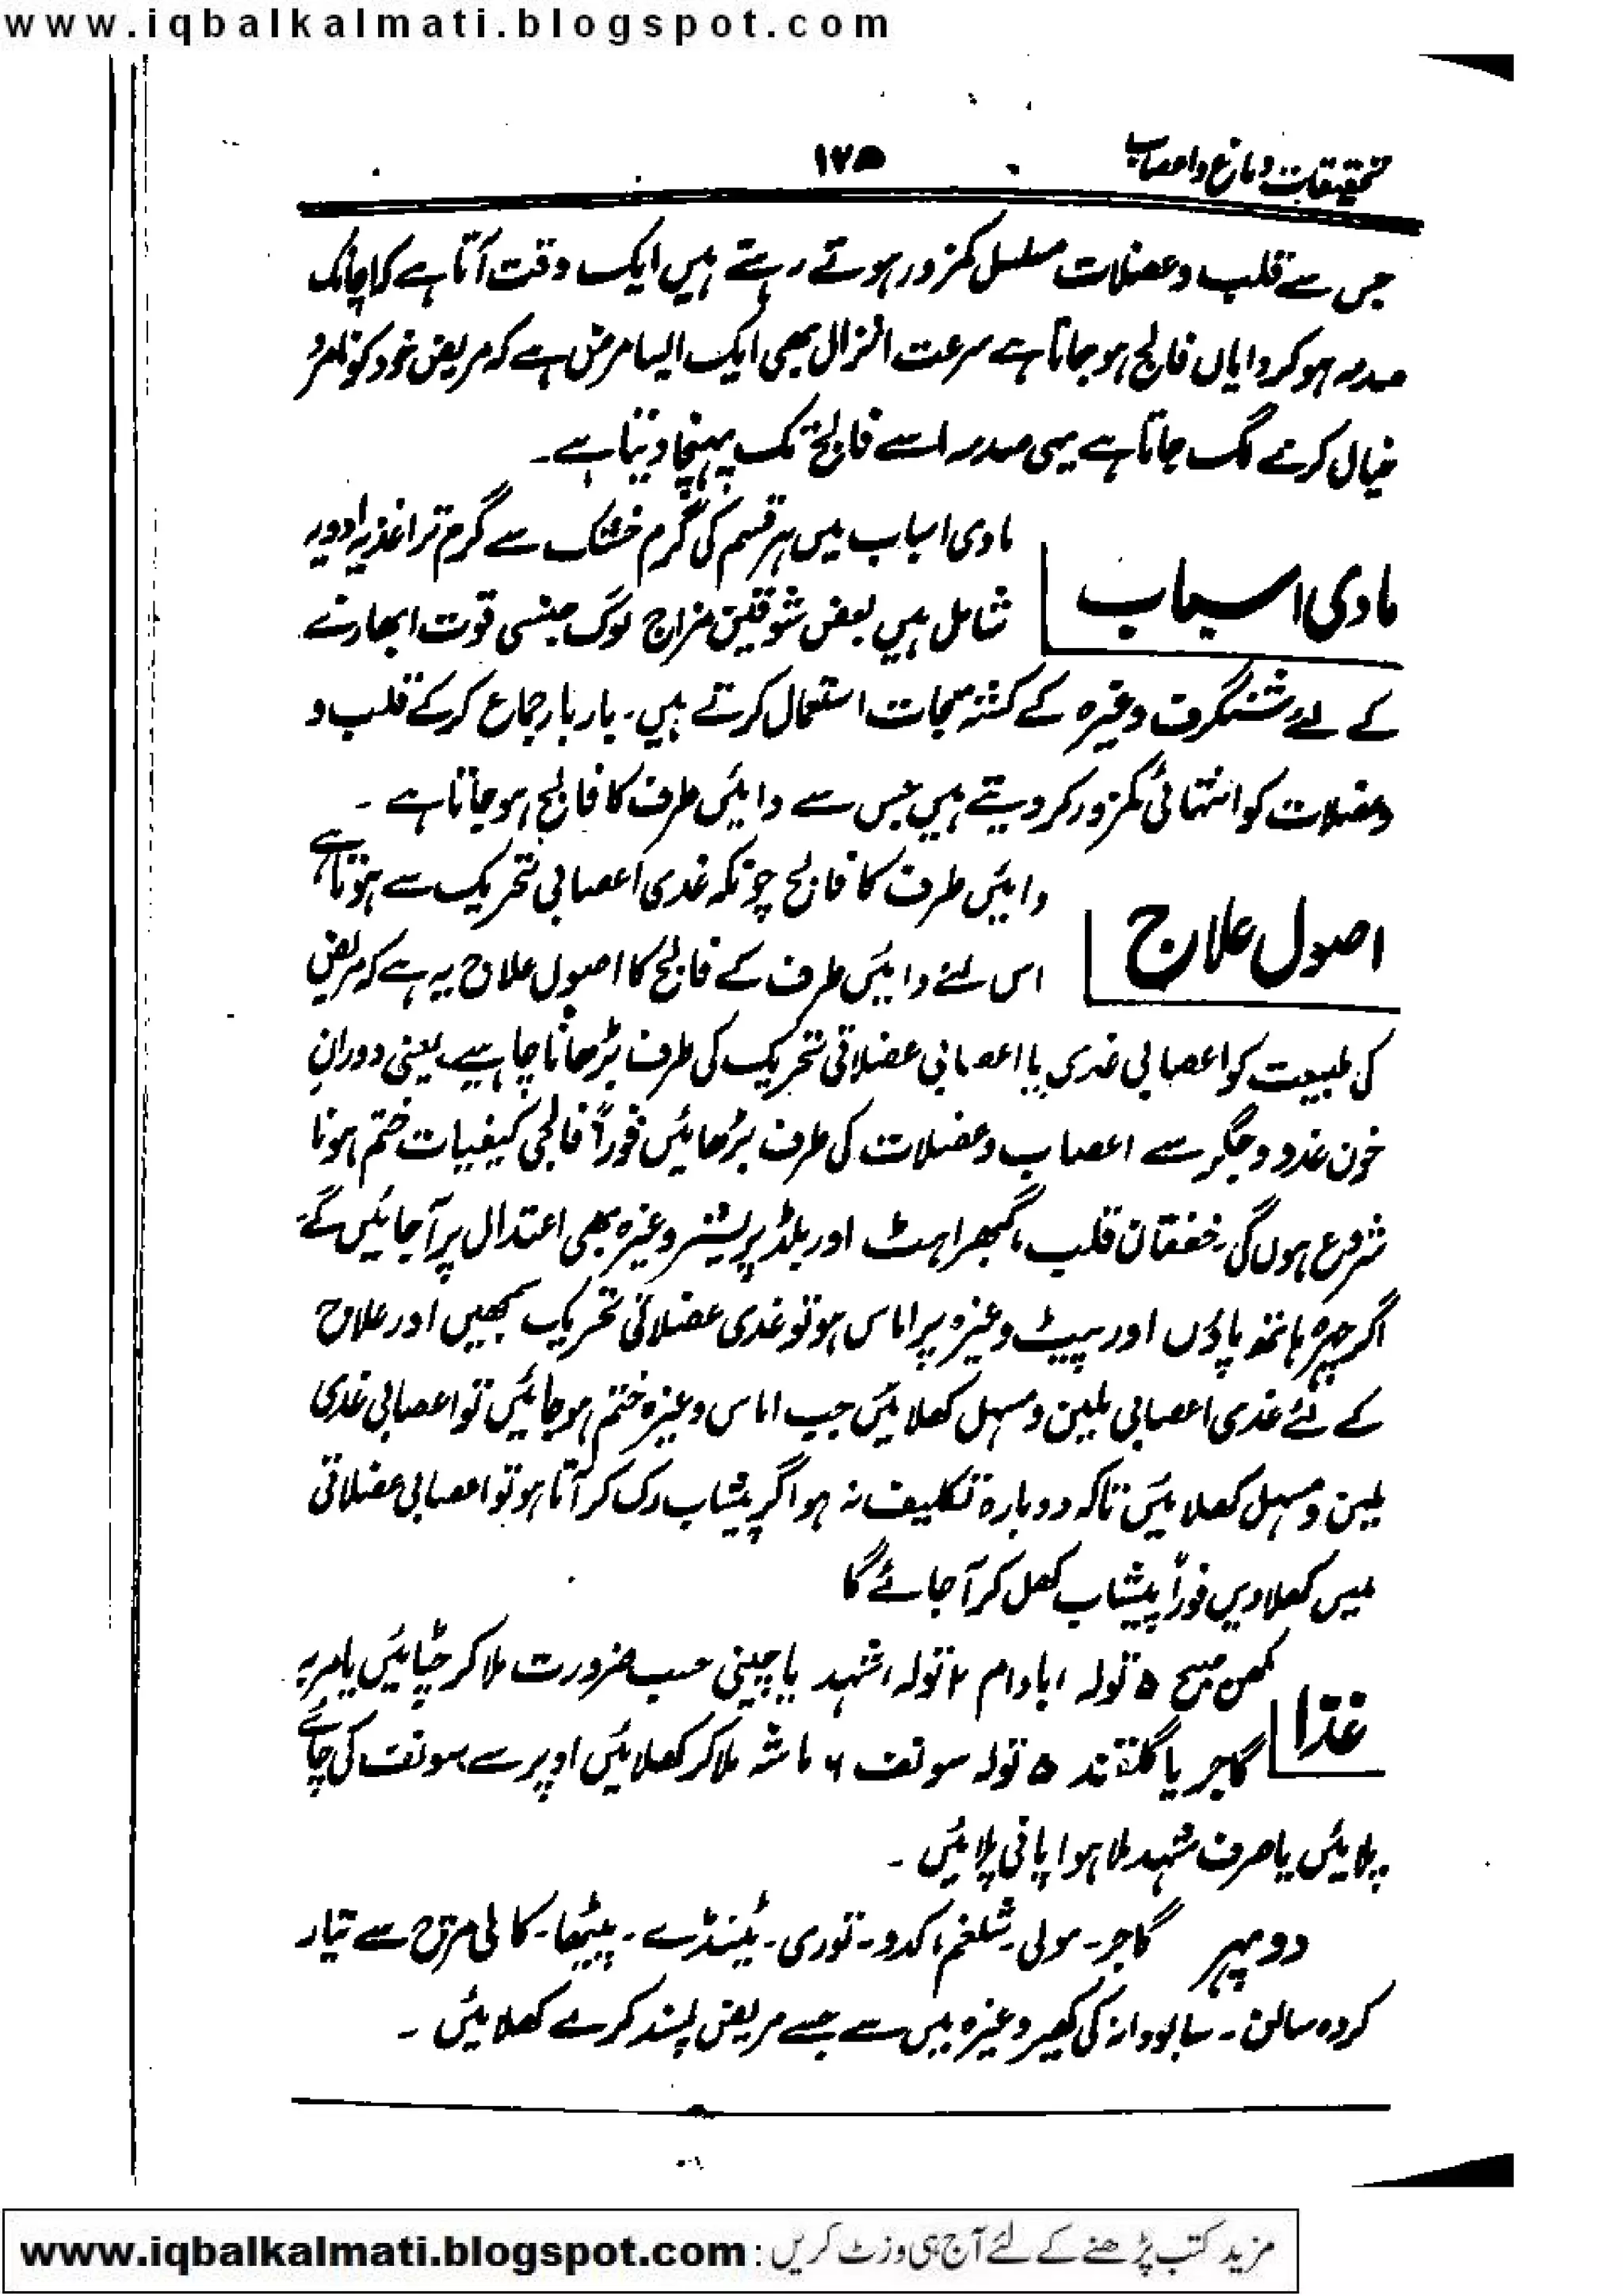 www.iqbalkalmati.blogspot.com
تحقیقات دماغ و اعصاب
۱۷۵
جس سے قلب و عضلات مسلسل کمزور ہوتے رہتے ہیں ایک وقت آتا ہے کہ اچانک
صدمہ ہو کر دایاں فالج ہو جاتا ہے سرعت انزال بھی ایک ایسا مرض ہے کہ مریض خود کو نامرد
خیال کرنے لگ جاتا ہے یہی صدمہ اسے فالج تک پہنچا دیتا ہے۔
مادی اسباب
مادی اسباب میں ہر قسم کی گرم خشک سے گرم تر اغذیہ ادویہ
شامل ہیں بعض شوقین مزاج لوگ جنسی قوت ابھارنے
کے لئے شنگرف وغیرہ کے کشتہ جات استعمال کرتے ہیں۔ بار بار جماع کر کے قلب و
و عضلات کو انتہائی کمزور کر دیتے ہیں جس سے دائیں طرف کا فالج ہو جاتا ہے۔
اصول علاج
دائیں طرف کا فالج چونکہ غدی اعصابی تحریک سے ہوتا ہے
اس لئے دائیں طرف کے فالج کا اصول علاج یہ ہے کہ مریض
کی طبیعت کو اعصابی غدی یا اعصابی عضلاتی تحریک کی طرف بڑھانا چاہیے یعنی دورانِ
خون غدد و جگر سے اعصاب و عضلات کی طرف بڑھائیں فوراً فالجی کیفیات ختم ہونا
شروع ہوں گی۔ خفقان قلب، گھبراہٹ اور بلڈ پریشر وغیرہ بھی اعتدال پر آجائیں گے۔
اگر چہرہ ہاتھ پاؤں اور پیٹ وغیرہ پر اماس ہو تو غدی عضلاتی تحریک سمجھیں اور علاج
کے لئے غدی اعصابی ملین و مسہل کھلائیں جب اماس وغیرہ ختم ہو جائیں تو اعصابی غدی
ملین و مسہل کھلائیں تاکہ دوبارہ تکلیف نہ ہو اگر پیشاب رک کر آتا ہو تو اعصابی عضلاتی
میں کھلا دیں فوراً پیشاب کھل کر آجائے گا
غذا
مکھن صبح ۵ تولہ، بادام ۲ تولہ، شہد یا چینی حسب ضرورت ملا کر چٹائیں یا مربہ
گاجر یا گلقند ۵ تولہ سونف ۶ ماشہ ملا کر کھلائیں اوپر سے سونف کی چائے
پلائیں یا صرف شہد ملا ہوا پانی پلائیں۔
دوپہر گاجر۔ مولی۔ شلغم، کدو۔ توری۔ ٹینڈے۔ پیٹھا۔ کالی مرچ سے تیار
کردہ سالن۔ سابودانہ کی کھیر وغیرہ میں سے جسے مریض پسند کرے کھلائیں۔
مزید کتب پڑھنے کے لئے آج ہی وزٹ کریں : www.iqbalkalmati.blogspot.com